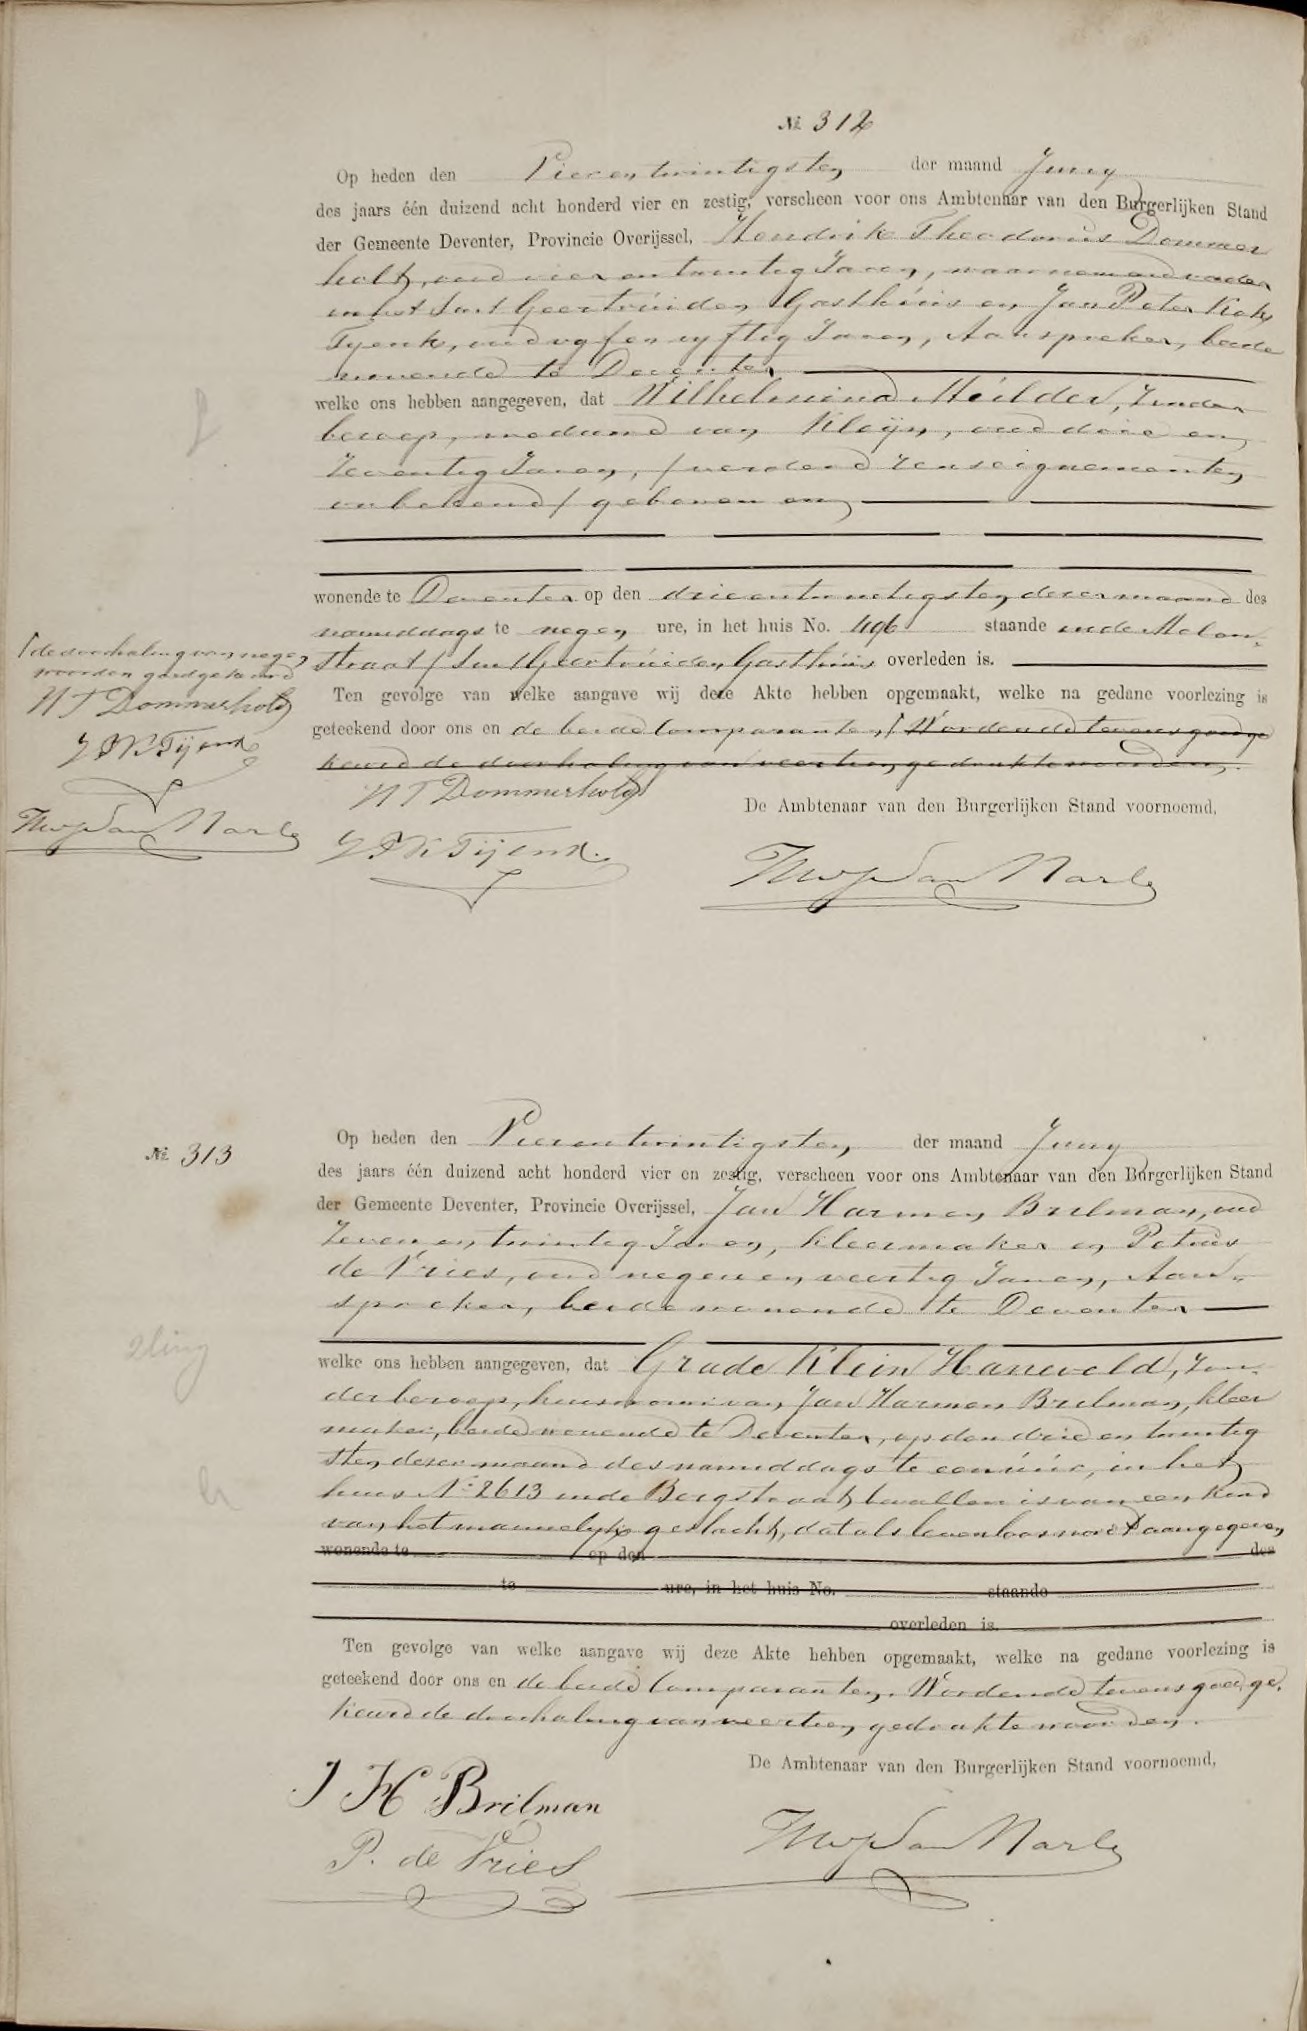 № 312
Op heden den Vierentwintigsten der maand Juny
des jaars één duizend acht honderd vier en zestig, verscheen voor ons Ambtenaar van den Burgerlijken Stand
der Gemeente Deventer, Provincie Overijssel, Hendrik Theodorus Dommer
holt, oud vier en twintig Jaren, waarnemend vader
in het Sint Geertruiden Gasthuis en Jan Peter Kok
Tyenk, oud vyf en vyftig Jaren, Aanspreker, beide
wonende te Deventer
welke ons hebben aangegeven, dat Wilhelmina Mulder, zonder
beroep, weduwe van Kleijn, oud drie en
zeventig Jaren, / verdere renseignementen
onbekend / geboren en
wonende te Deventer op den drieentwintigsten dezer maand des
namiddags te negen ure, in het huis No. 496 staande in de Molen-
straat / Sint Geertruiden Gasthuis overleden is.
Ten gevolge van welke aangave wij deze Akte hebben opgemaakt, welke na gedane voorlezing is
geteekend door ons en de beide Comparanten / Wordende tevens goedge
keurd de doorhaling van veertien gedrukte woorden.
/ de doorhaling van negen
woorden goedgekeurd
H T Dommerholt
J P K Tijenk
van Marle
H T Dommerholt
De Ambtenaar van den Burgerlijken Stand voornoemd,
J P K Tijenk.
van Marle
№ 313
Op heden den Vierentwintigsten der maand Juny
des jaars één duizend acht honderd vier en zestig, verscheen voor ons Ambtenaar van den Burgerlijken Stand
der Gemeente Deventer, Provincie Overijssel, Jan Harmen Brilman, oud
zeven en twintig Jaren, kleermaker en Petrus
de Vries, oud negen en veertig Jaren, Aan-
spreker, beide wonende te Deventer
2ling
welke ons hebben aangegeven, dat Grade Klein Haneveld, zon-
der beroep, huisvrouw van Jan Harmen Brilman, kleer
maker, beide wonende te Deventer, op den drie en twintig
sten dezer maand des namiddags te een ure, in het
huis No 2613 in de Bergstraat, bevallen is van een kind
van het mannelyk geslacht, dat als levenloos word aangegeven
wonende te op den des
te ure, in het huis No. staande
overleden is.
Ten gevolge van welke aangave wij deze Akte hebben opgemaakt, welke na gedane voorlezing is
geteekend door ons en de beide Comparanten. Wordende tevens goedge-
keurd de doorhaling van veertien gedrukte woorden.
De Ambtenaar van den Burgerlijken Stand voornoemd,
J H Brilman
P. de Vries
van Marle